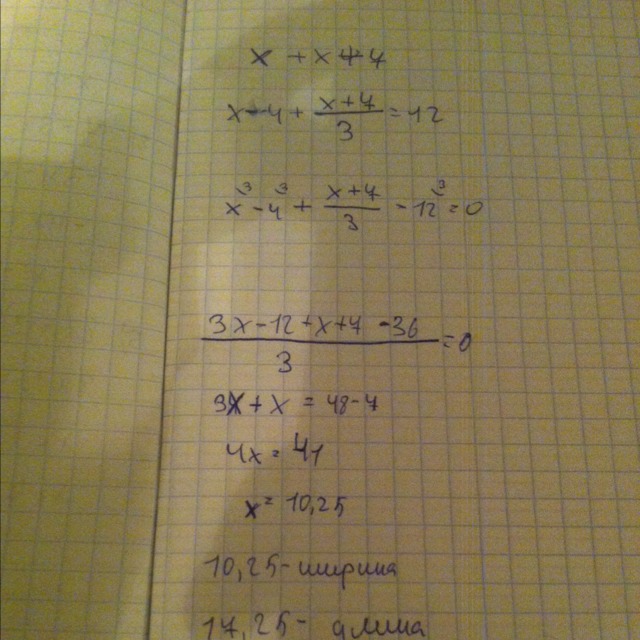 x + x + 4
x - 4 + (x+4)/3 = 12
x³ - 4³ + (x+4)/3 - 12³ = 0
(3x - 12 + x + 4 - 36)/3 = 0
3x + x = 48 - 7
4x = 41
x = 10,25
10,25 - ширина
17,25 - длина